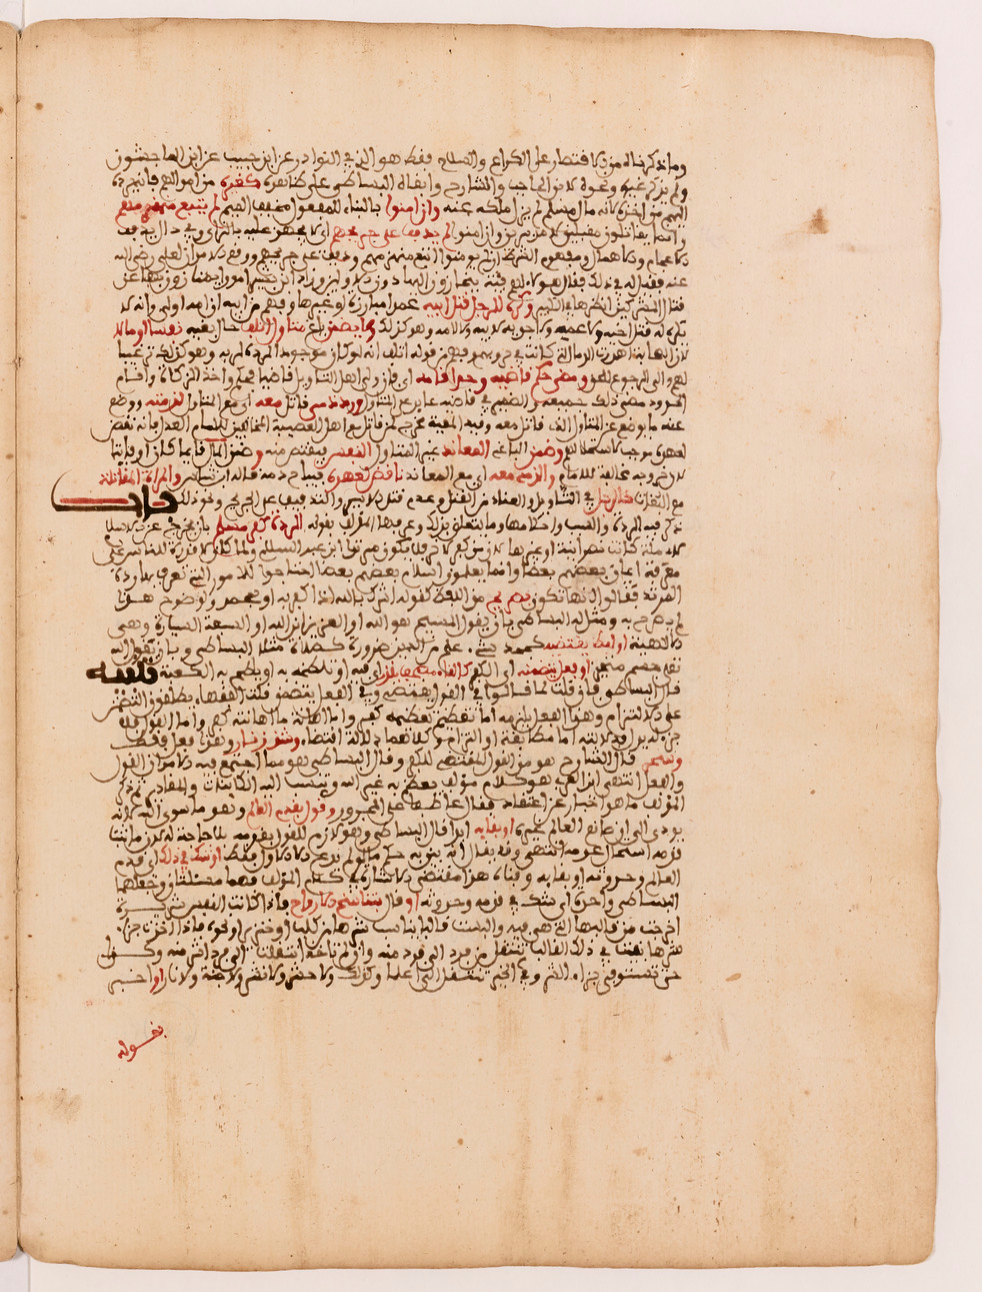 وما ذكرناه من الاقتصار على الكراع والسلاح فقط هو الذي في النوادر عن ابن حبيب عن ابن الماجشون
ولم يذكر غيره ونحوه لابن الحاجب والشارح وابقاه البساطي على ظاهره كغيره من اموالهم فانهم ذا
اليهم من اخذه لانه مال مسلم لم يزل ملكه عنه وان امنوا بالبناء للمفعول مخفف الميم لم يتبع منهزمهم
وانما يقاتلون مقبلين لا مدبرين وان امنوا لم يذفف على جريحهم اي لا يجهز عليه بالزاي وفي دال يذفف
الاعجام والاهمال ومفهوم الشرط ان لم يومنوا اتبع منهزمهم وذفف على جريحهم ووقع لامر ان لعلي رضي الله
عنه فقيل له في ذلك فقال هولاء لهم فئة
قتل المشركين انظرها في الكبير وكره للرجل قتل ابيه عمدا مبارزة او غيرها وفهم من ابيه ان امه اولى وانه لا
يكره له قتل اخيه ولا عمه ولا جده لابيه ولا لامه وهو كذلك ولم يضمن باغ متاول اتلف حال بغيه نفسا او مالا
لان الصحابة اهدرت الدماء التي كانت في حروبهم وفهم من قوله اتلف انه لو كان موجودا لرده لربه وهو كذلك ترغيبا
لهم الى الرجوع للحق ومضى حكم قاضيه وحد اقامه اي فان ولى اهل التاويل قاضيا فحكم واخذ الزكاة واقام
الحدود مضى ذلك جميعه والضمير في قاضيه عايد على المتاول ورد ذمي قاتل معه اي مع المتاول لذمته ووضع
عنه ما يوضع عن المتاول الذي قاتل معه وفيد المعية مخرج لمن قاتل مع اهل العصبية المخالفين للامام العدل فانه نقض
لعهده موجب لاستحلالهم وضمن الباغي المعاند غير المتاول النفس فيقتص منه وضمن المال قايما كان او فايتا
لان خروجه مخالفة للامام والذمي معه اي مع المعاند ناقض لعهده فيباح دمه قاله ابن شاس والمراة المقاتلة
مع البغاة كالرجل في التاويل والعناد من القتل وعدم قتل الاسير والتذفيف على الجريح ونحو ذلك باب
ذكر فيه الردة والسب واحكامها وما يتعلق بذلك وعرفها المولف بقوله الردة كفر مسلم بان يخرج عن دين الاسلام
لاي ملة كانت نصرانية او غيرها لان من كفر لا دين له يكون مرتدا ابن عبد السلام ولما كان لا قدرة للناس على
معرفة ايمان بعضهم بعضا وانما يعلمون اسلام بعضهم بعضا احتاجوا للامور التي تعرف بها ردة
المرتد فقالوا انها تكون بصريح من اللفظ كقوله اشرك بالله او اكفر به او بمحمد ولوضوح هذا
لم يصرح به ومثله البساطي بان يقول المسيح هو الله او العزير ابن الله او السبعة السيارة وهي
الالهية او لفظ يقتضيه كجحد شيء علم من الدين ضرورة كصلاة مثله البساطي وبان يقول الله
تعالى جسم متحيز او فعل يتضمنه اي الكفر كالقاء مصحف بقذر اي فيه او تلطخه به او يلطخ به الكعبة تكملة
قال البساطي فان قلت لم قالوا في القول يقتضيه وفي الفعل يتضمن قلت الفقهاء يطلقون التضمن
على الالتزام وهو الفعل يلزمه اما تعظيم تعظيمه كفر واما اهانة ما اهانته كفر واما القول فلا
جزء لدين او دلالته اما مطابقة او التزام وكلاهما دلالة اقتضاء وشد زنار وهذا فعل فقط
وسحر قال الشارح هو من القول المقتضي للكفر وقال البساطي هو مما اجتمع فيه الامران القول
والفعل انتهى ابن العربي هو كلام مولف يعظم به غير الله وتنسب اليه الكائنات والمقادير ثم ذكر
المولف ما هو اخبار عن اعتقاد فقال عاطفا على المجرور وقول بقدم العالم وهو ما سوى الله لانه
يودي الى ان صانع العالم غيره او بقايه ابدا قال البساطي وهو لازم للقول بقدمه فلا حاجة له لان ما ثبت
قدمه استحال عدمه انتهى وقد يقال انه ينبه به حكم ما لو لم يدع الا الاول فقط او شك في ذلك اي قدم
العالم وحدوثه او بقايه وفنايه هذا مقتضى الاشارة في كلام المولف فهما مسئلتان وجعلهما
البساطي واحدة اي شك في قدمه وحدوثه او قال بتناسخ الارواح فاذا كانت النفس شريرة
اخرجت من قالبها الذي هي فيه والبست قالبا يناسب شرها من كلب او خنزير او نحوه فاذا اخذت جزاء
شرها بقيت في ذلك القالب تنتقل من فرد الى فرد منه وان لم تاخذ انتقلت الى فرد اشر منه وكذا
حتى تستوفي جزاء الشر وفي الخير تنتقل الى اعلى وكذلك ولا حشر ولا نشر ولا جنة ولا نار او احسبر
بقوله